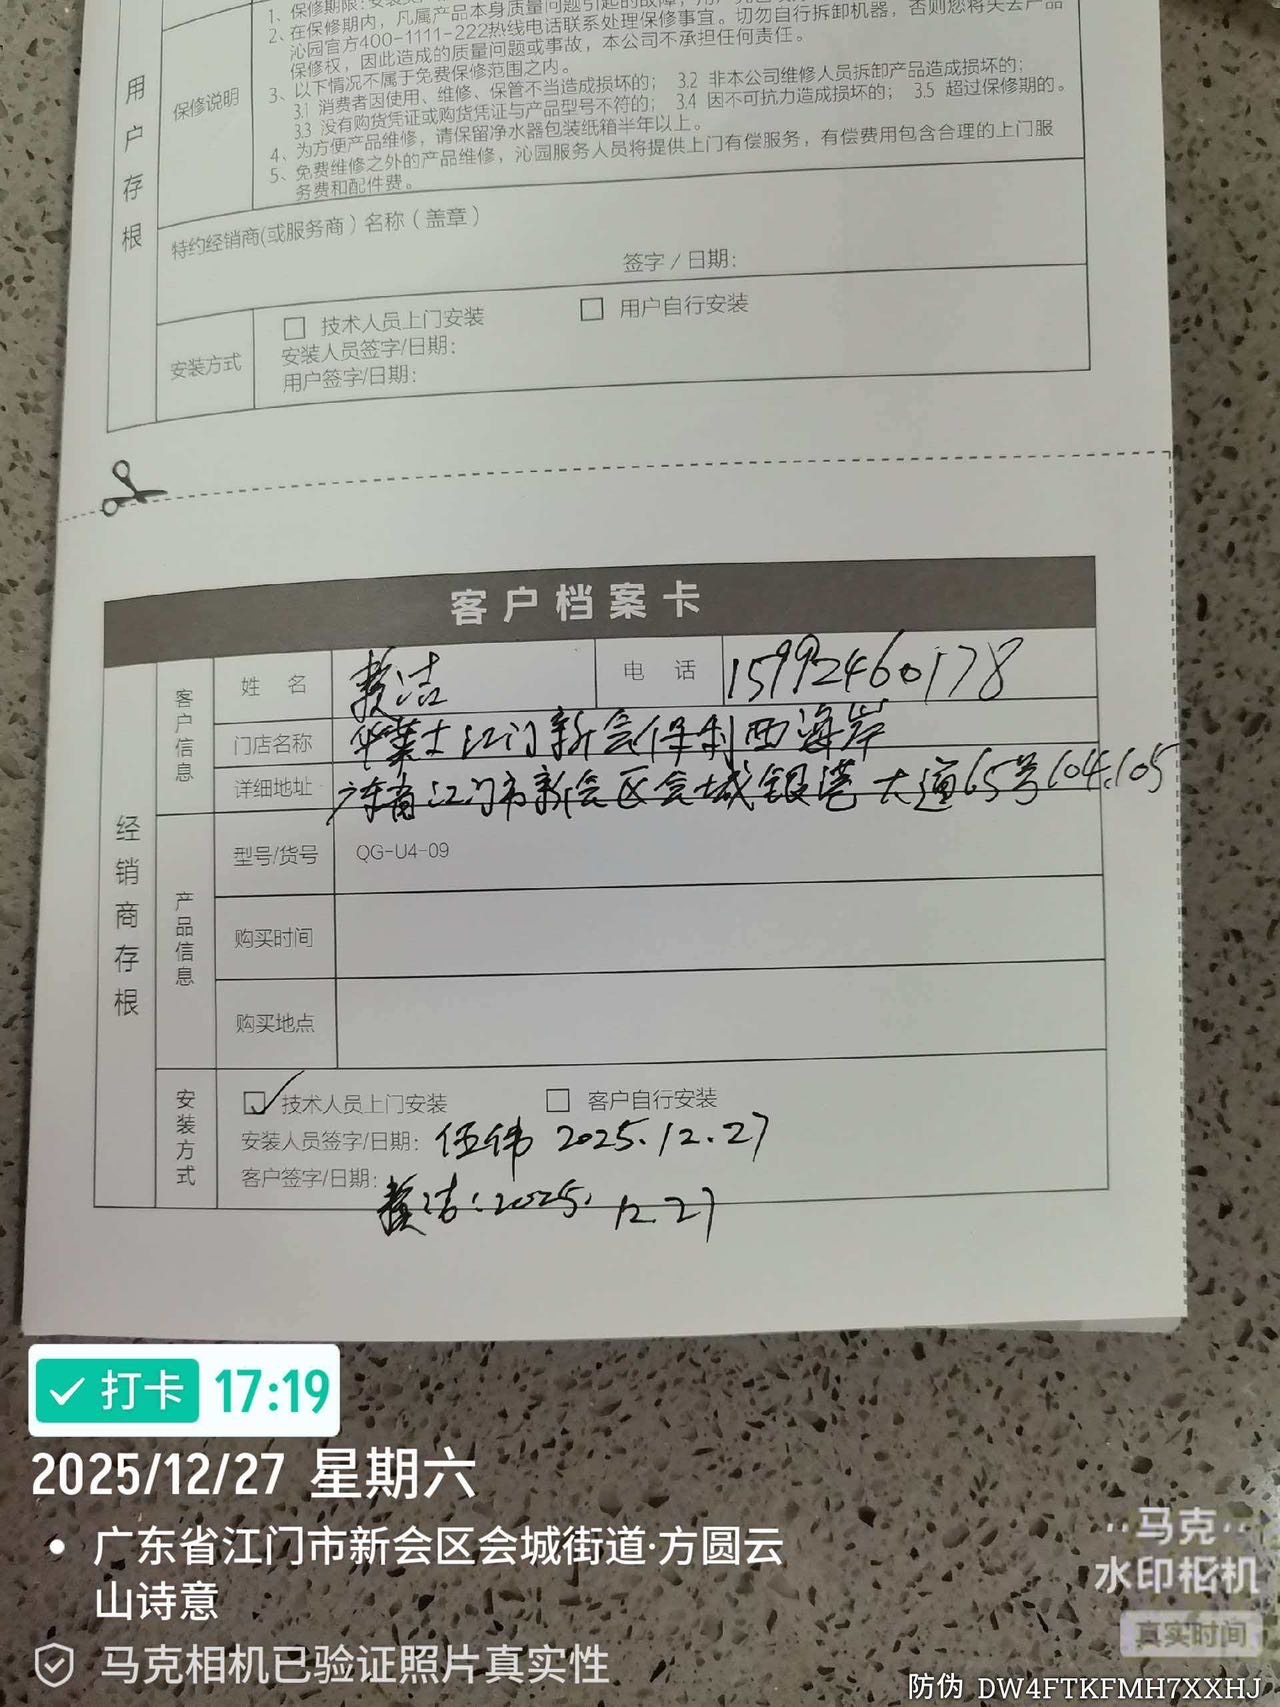 用户存根
保修说明
2、在保修期内，凡属产品本身质量问题引起的故障，
沁园官方400-1111-222热线电话联系处理保修事宜。切勿自行拆卸机器，否则您将失去产品
保修权，因此造成的质量问题或事故，本公司不承担任何责任。
3、以下情况不属于免费保修范围之内。
3.1 消费者因使用、维修、保管不当造成损坏的； 3.2 非本公司维修人员拆卸产品造成损坏的；
3.3 没有购货凭证或购货凭证与产品型号不符的； 3.4 因不可抗力造成损坏的； 3.5 超过保修期的。
4、为方便产品维修，请保留净水器包装纸箱半年以上。
5、免费维修之外的产品维修，沁园服务人员将提供上门有偿服务，有偿费用包含合理的上门服
务费和配件费。
特约经销商(或服务商）名称（盖章）
签字 / 日期:
安装方式
□ 技术人员上门安装 □ 用户自行安装
安装人员签字/日期:
用户签字/日期:
客户档案卡
经销商存根
客户信息
姓 名 赖洁 电 话 15992460178
门店名称 华莱士江门新会保利西海岸
详细地址 广东省江门市新会区会城银港大道65号104.105
产品信息
型号/货号 QG-U4-09
购买时间
购买地点
安装方式
☑ 技术人员上门安装 □ 客户自行安装
安装人员签字/日期: 伍伟 2025.12.27
客户签字/日期: 赖洁:2025.12.27
打卡 17:19
2025/12/27 星期六
• 广东省江门市新会区会城街道·方圆云
山诗意
马克相机已验证照片真实性
马克
水印相机
真实时间
防伪 DW4FTKFMH7XXHJ